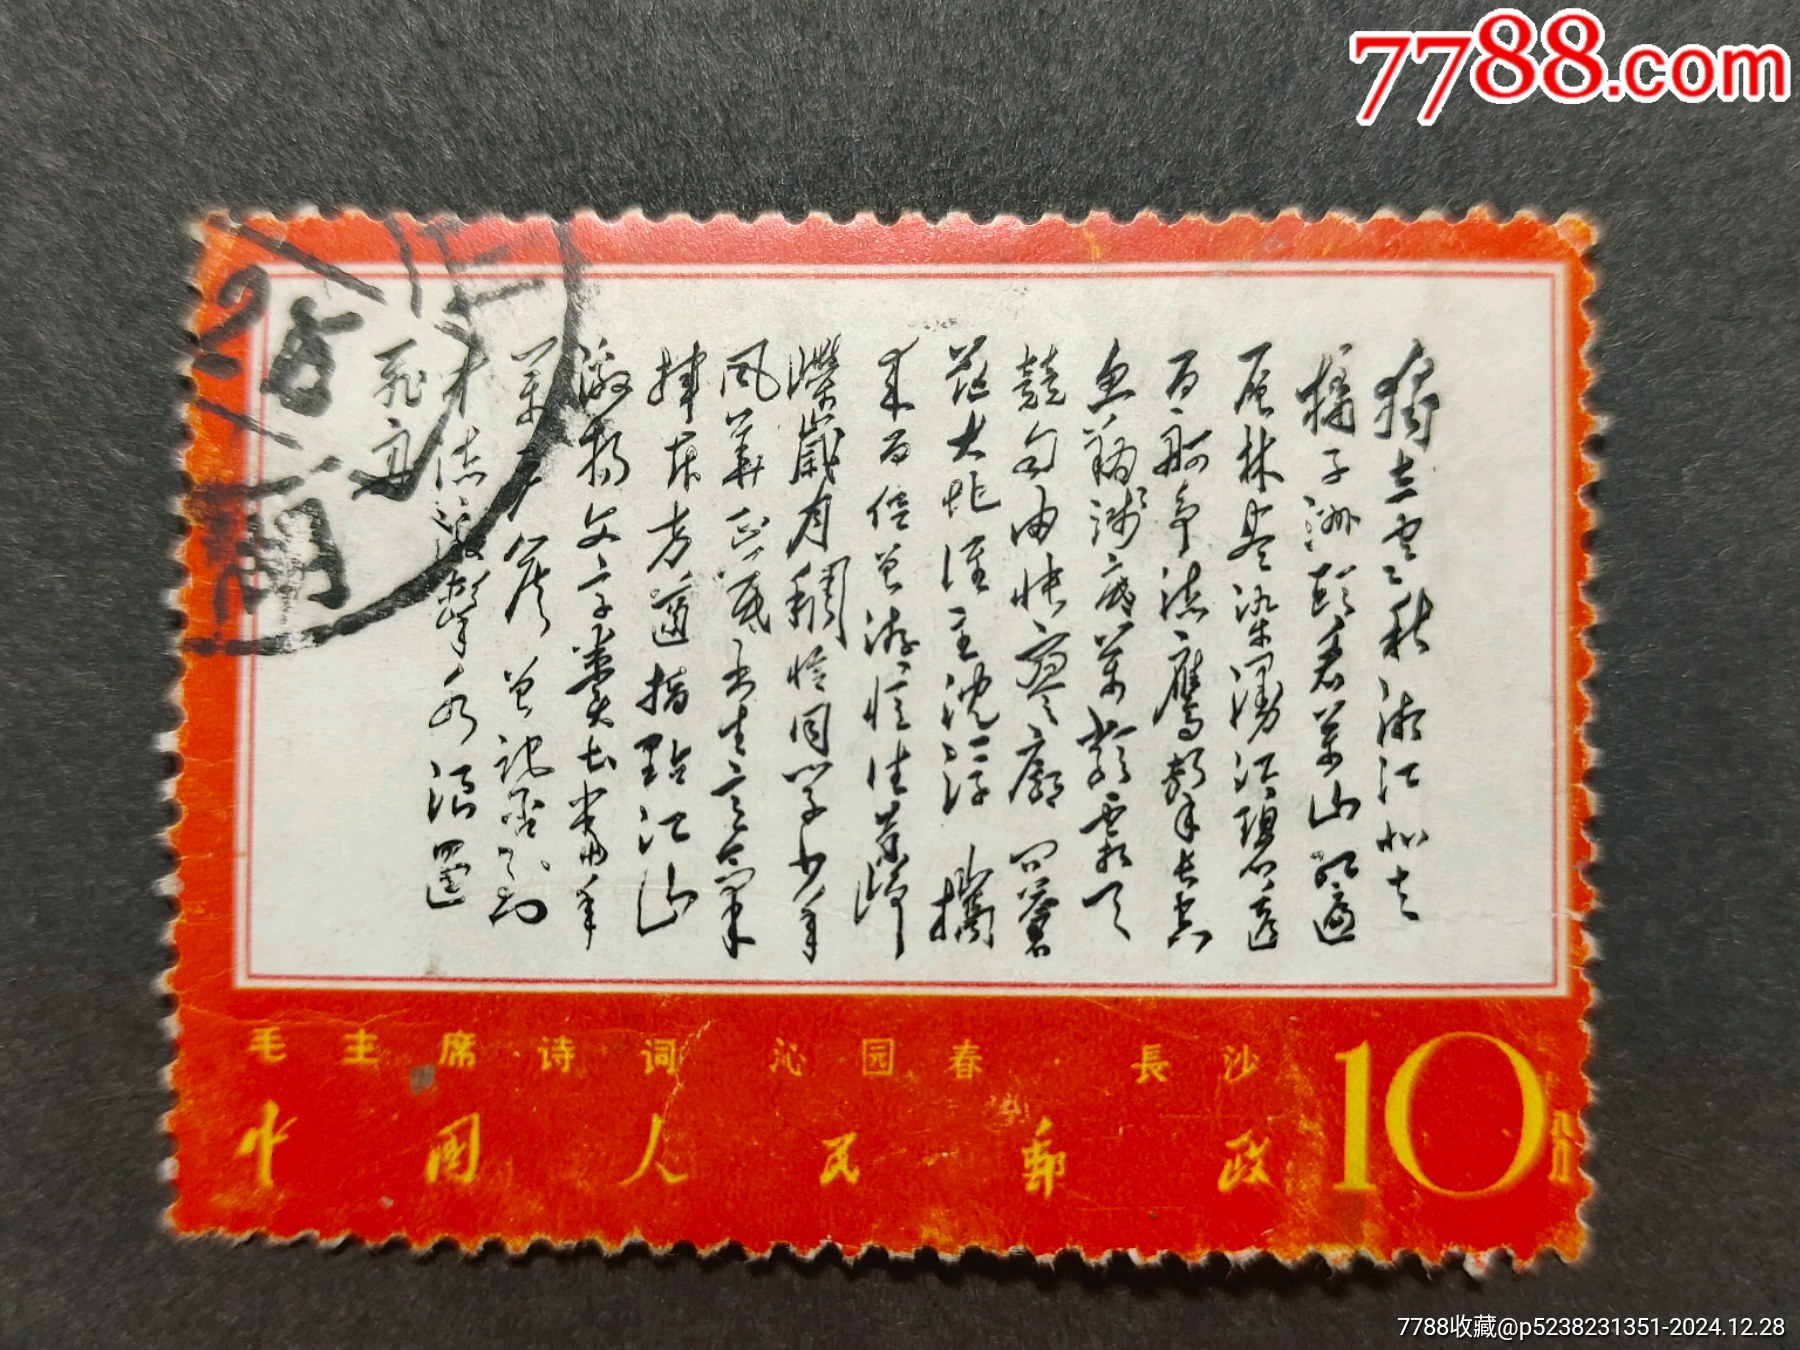 7788.com
獨立寒秋湘江北去
橘子洲頭看萬山紅遍
层林尽染漫江碧透
百舸争流鷹擊长空
鱼翔浅底萬類霜天
競自由悵寥廓问蒼
茫大地谁主沈浮 攜
来百侣曾游忆往昔峥
嶸歲月稠恰同学少年
风華正茂书生意氣
揮斥方遒指點江山
激揚文字糞土當年
萬户侯曾记否到
中流擊水浪遏
飛舟
毛主席诗词 沁园春·長沙
中国人民郵政
10分
7788收藏@p5238231351-2024.12.28